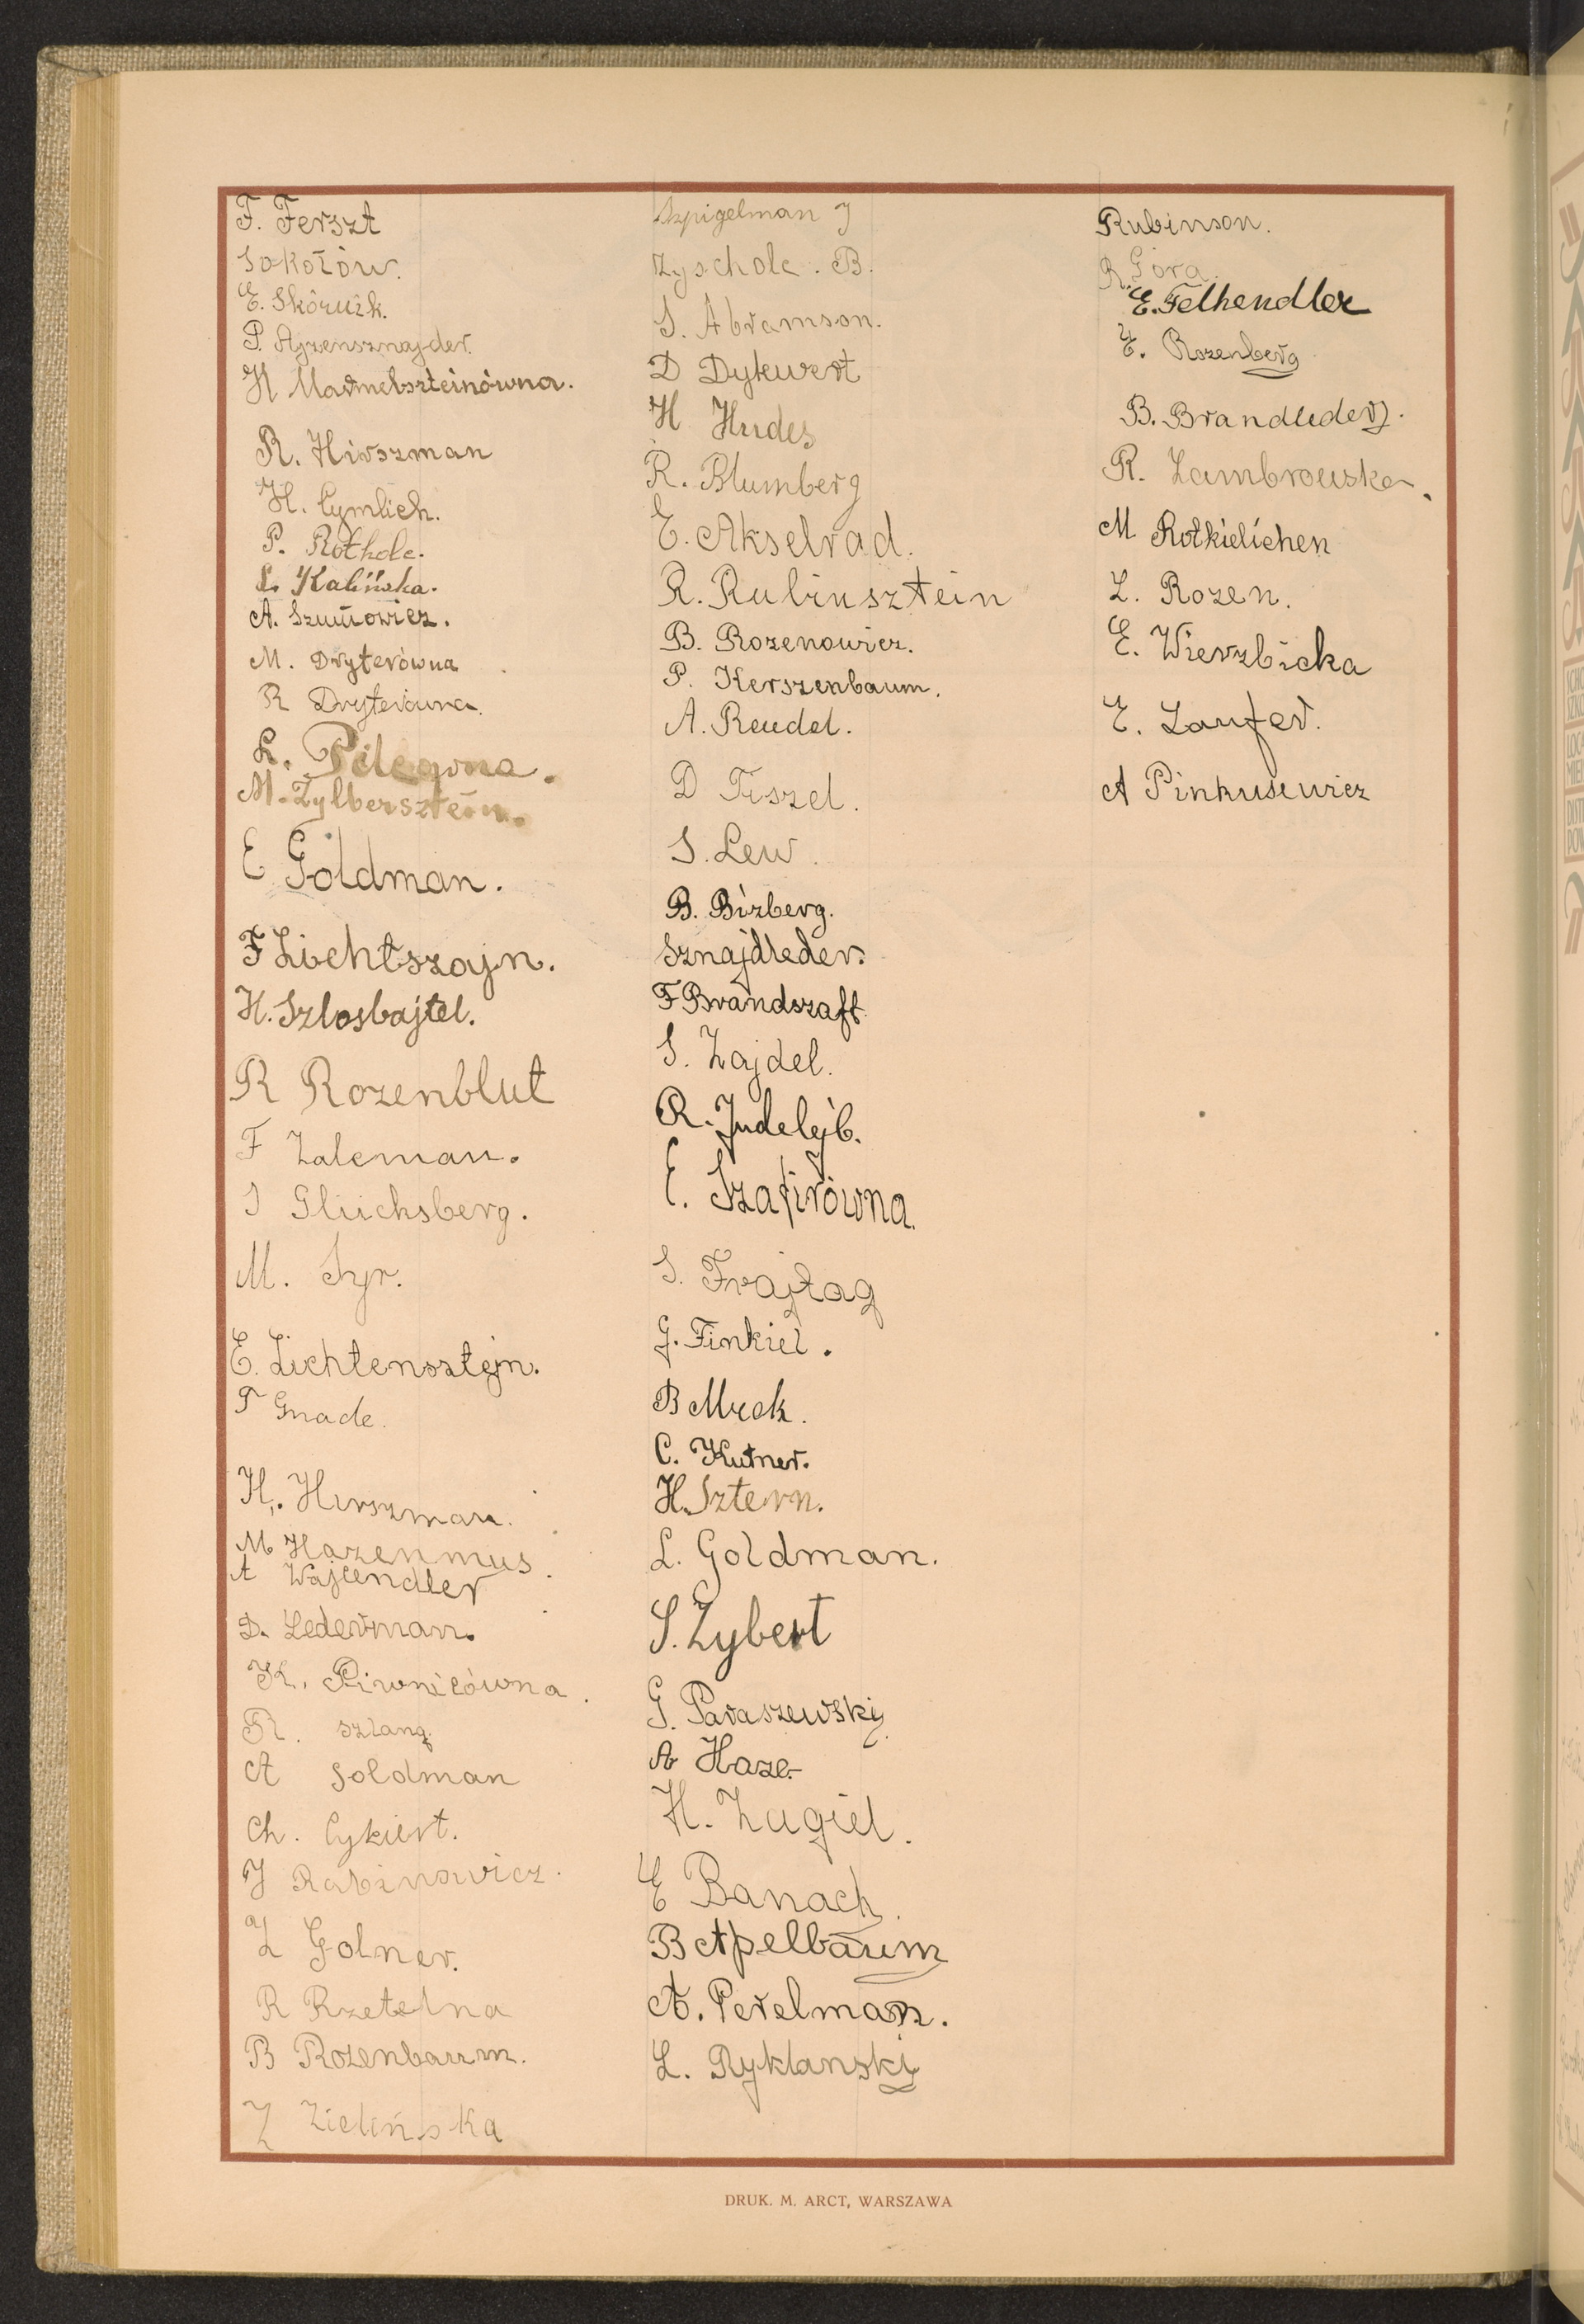 F. Ferszt
Sokołów.
E. Skórnik.
P. Ajzensznajder.
H Marmelszteinówna.
R. Hirszman
H. Cymlich.
P. Rotholc.
L. Kalińska.
A. Szumowicz.
M. Dryterówna
R Dryterówna.
L. Pilegowna.
M. Zylbersztein.
E Goldman.
F Lichtszajn.
H. Szlosbajtel.
R Rozenblut
F Zaleman.
S Glücksberg.
M. Syr.
E. Lichtensztejn.
T Gnade.
H. Hirszman.
M Hazenmus.
A Wajcendler
D. Lederman.
K. Piwnicówna.
R. Szlang.
A Goldman
Ch. Cykiert.
J Rabinowicz.
Z Golner.
R Rzetelna
B Rozenbaum.
Z Zielińska
Szpigelman J
Zyscholc. B.
S. Abramson.
D Dykwert
H Hudes
R. Blumberg
E. Akselrad.
R. Rubinsztein
B. Rozenowicz.
P. Kerszenbaum.
A. Reudel.
D Fiszel.
S. Lew.
B. Bizberg.
Sznajdleder.
F Brandszaft.
S. Zajdel.
R. Judelejb.
E. Szafirówna.
S. Frajtag
G. Finkiel.
B Mrek.
C. Kutner.
H. Sztern.
L. Goldman.
S. Zybert
G. Paraszewski
A Haze
H. Zugiel.
E Banach.
B Apelbaum
A. Perelman.
L. Ryklanski
Rubinson.
R. Góra.
E. Felhendler
E. Rozenberg
B. Brandleder.
R. Zambrowska.
M Rotkielichen
L. Rozen.
E. Wierzbicka
E. Laufer.
A Pinkusewicz
DRUK. M. ARCT, WARSZAWA